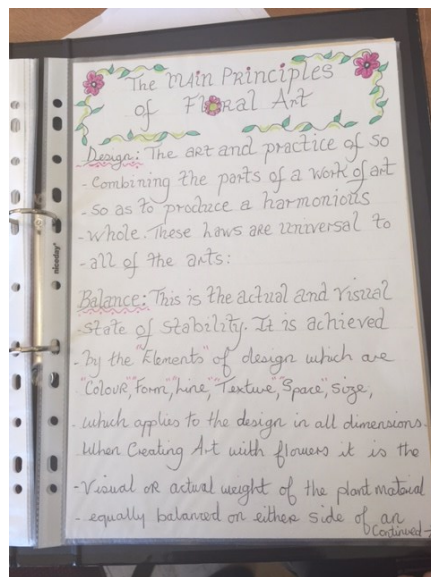 The Main Principles
of Floral Art
Design: The art and practice of so
- Combining the parts of a work of art
- so as to produce a harmonious
- whole. These laws are universal to
- all of the arts:
Balance: This is the actual and visual
- state of stability. It is achieved
- by the "Elements" of design which are
"Colour," Form," Line," Texture," Space," Size,
- which applies to the design in all dimensions.
- When Creating Art with flowers it is the
- Visual or actual weight of the plant material
- equally balanced on either side of an
Continued →
niceday